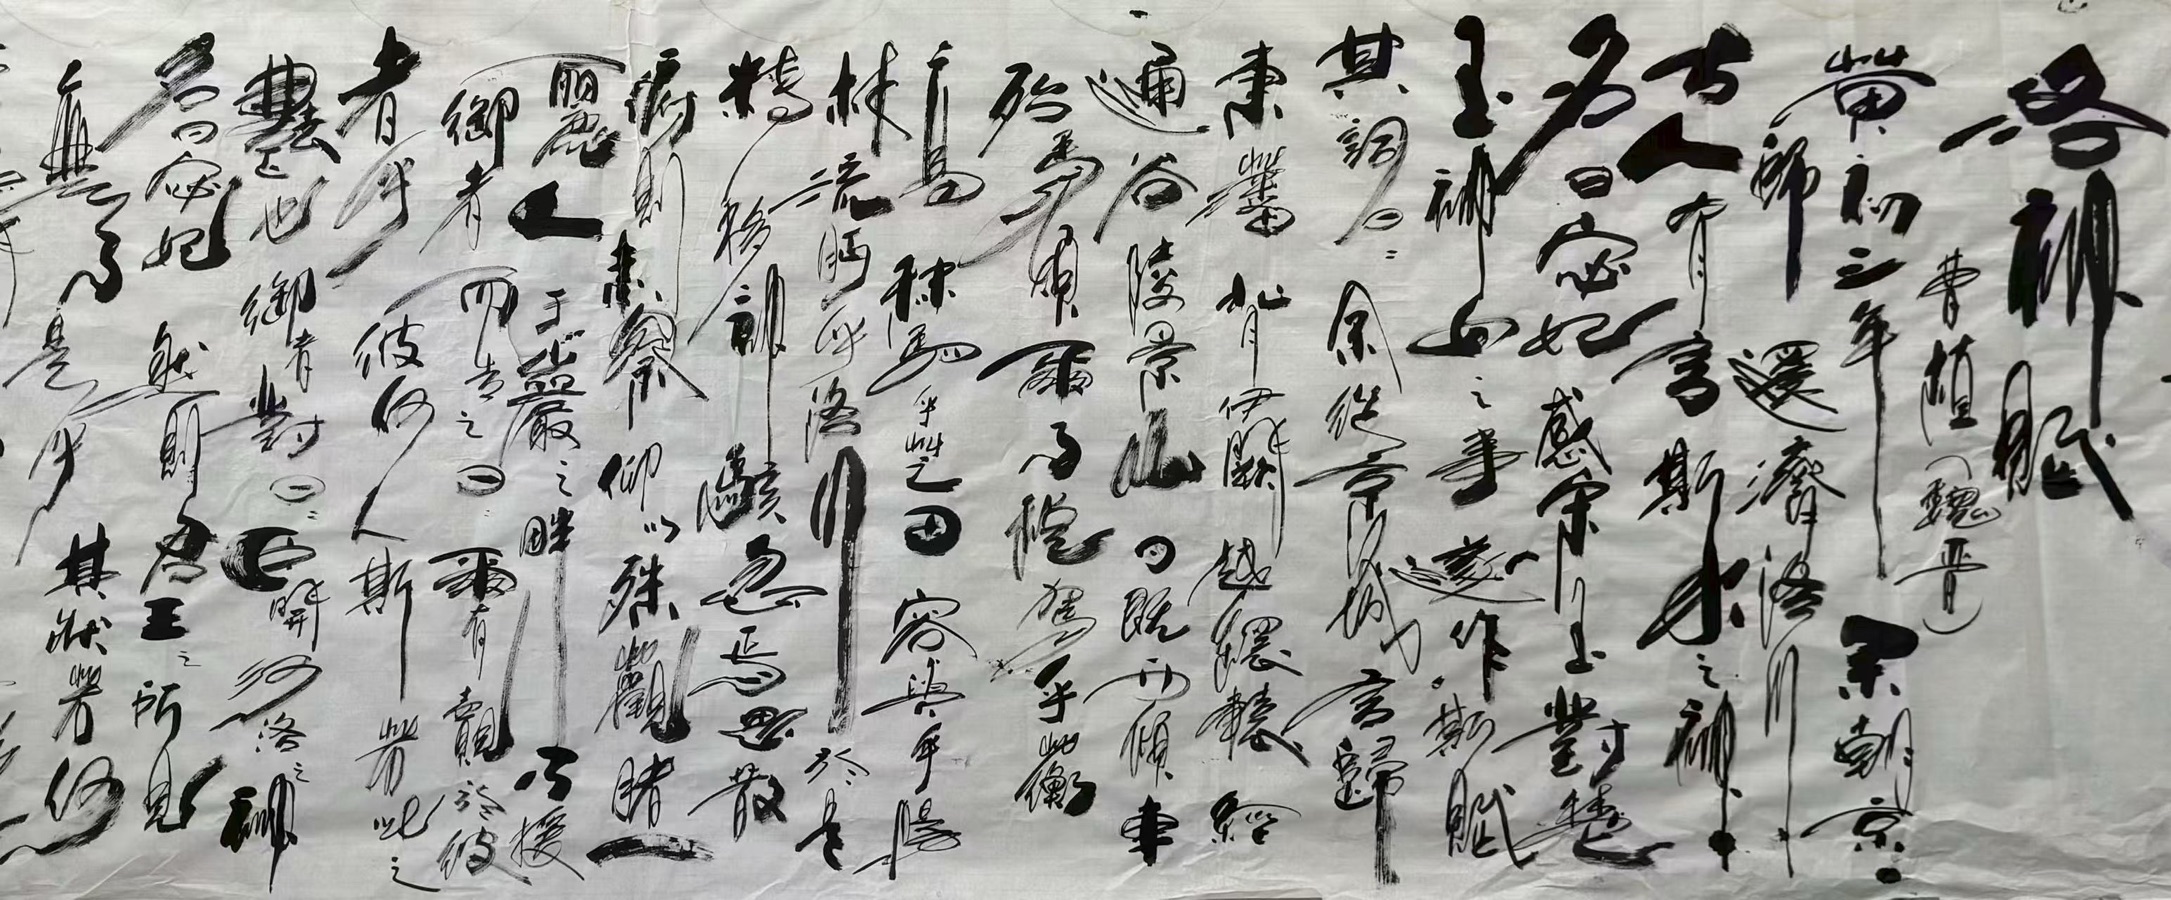 洛神賦
曹植（魏晋）
黄初三年余朝京
師還濟洛川
古人有言斯水之神
名曰宓妃感宋玉對楚
王神女之事遂作斯賦
其詞曰余從京城言歸
東藩背伊闕越轘轅經
通谷陵景山日既西傾車
殆馬煩爾乃税駕乎蘅
皋秣駟乎芝田容與乎陽
林流眄乎洛川於是
精移神駭忽焉思散
俯則未察仰以殊觀睹一
麗人于巖之畔乃援
御者而告之曰爾有覿於彼
者乎彼何人斯若此之
豔也御者對曰臣聞河洛之神
名曰宓妃然則君王之所見
無乃是乎其狀若何